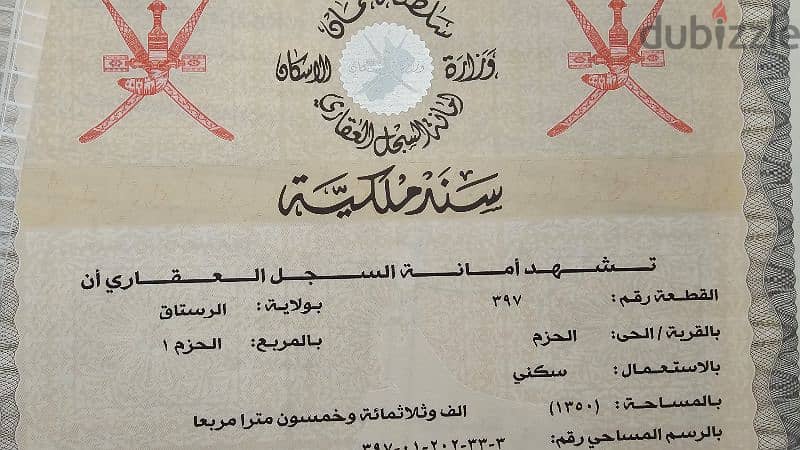 dubizzle
سلطنة عمان
وزارة الاسكان
امانة السجل العقاري
سند ملكية
تشهد أمانة السجل العقاري أن
القطعة رقم: ٣٩٧ بولاية: الرستاق
بالقرية / الحى: الحزم بالمربع: الحزم ١
بالاستعمال: سكني
بالمساحة: (١٣٥٠) الف وثلاثمائة وخمسون مترا مربعا
بالرسم المساحي رقم: ٣-٣٣-٢٠٢-٠١-٣٩٧